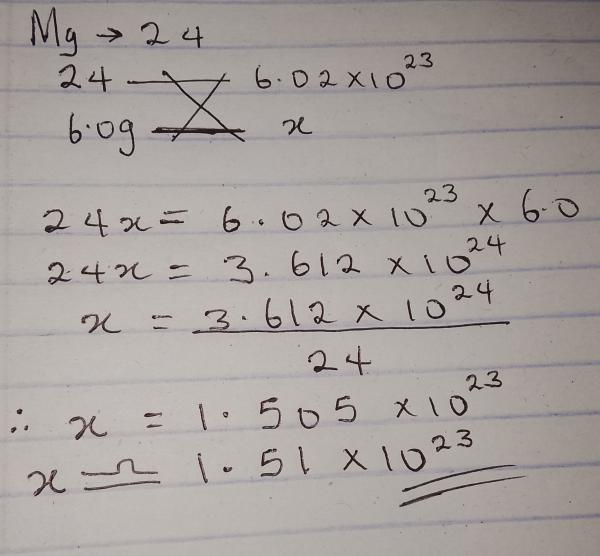 Mg → 24
24 6.02 × 10²³
6.0g x
24x = 6.02 × 10²³ × 6.0
24x = 3.612 × 10²⁴
x = 3.612 × 10²⁴
24
∴ x = 1.505 × 10²³
x ≏ 1.51 × 10²³